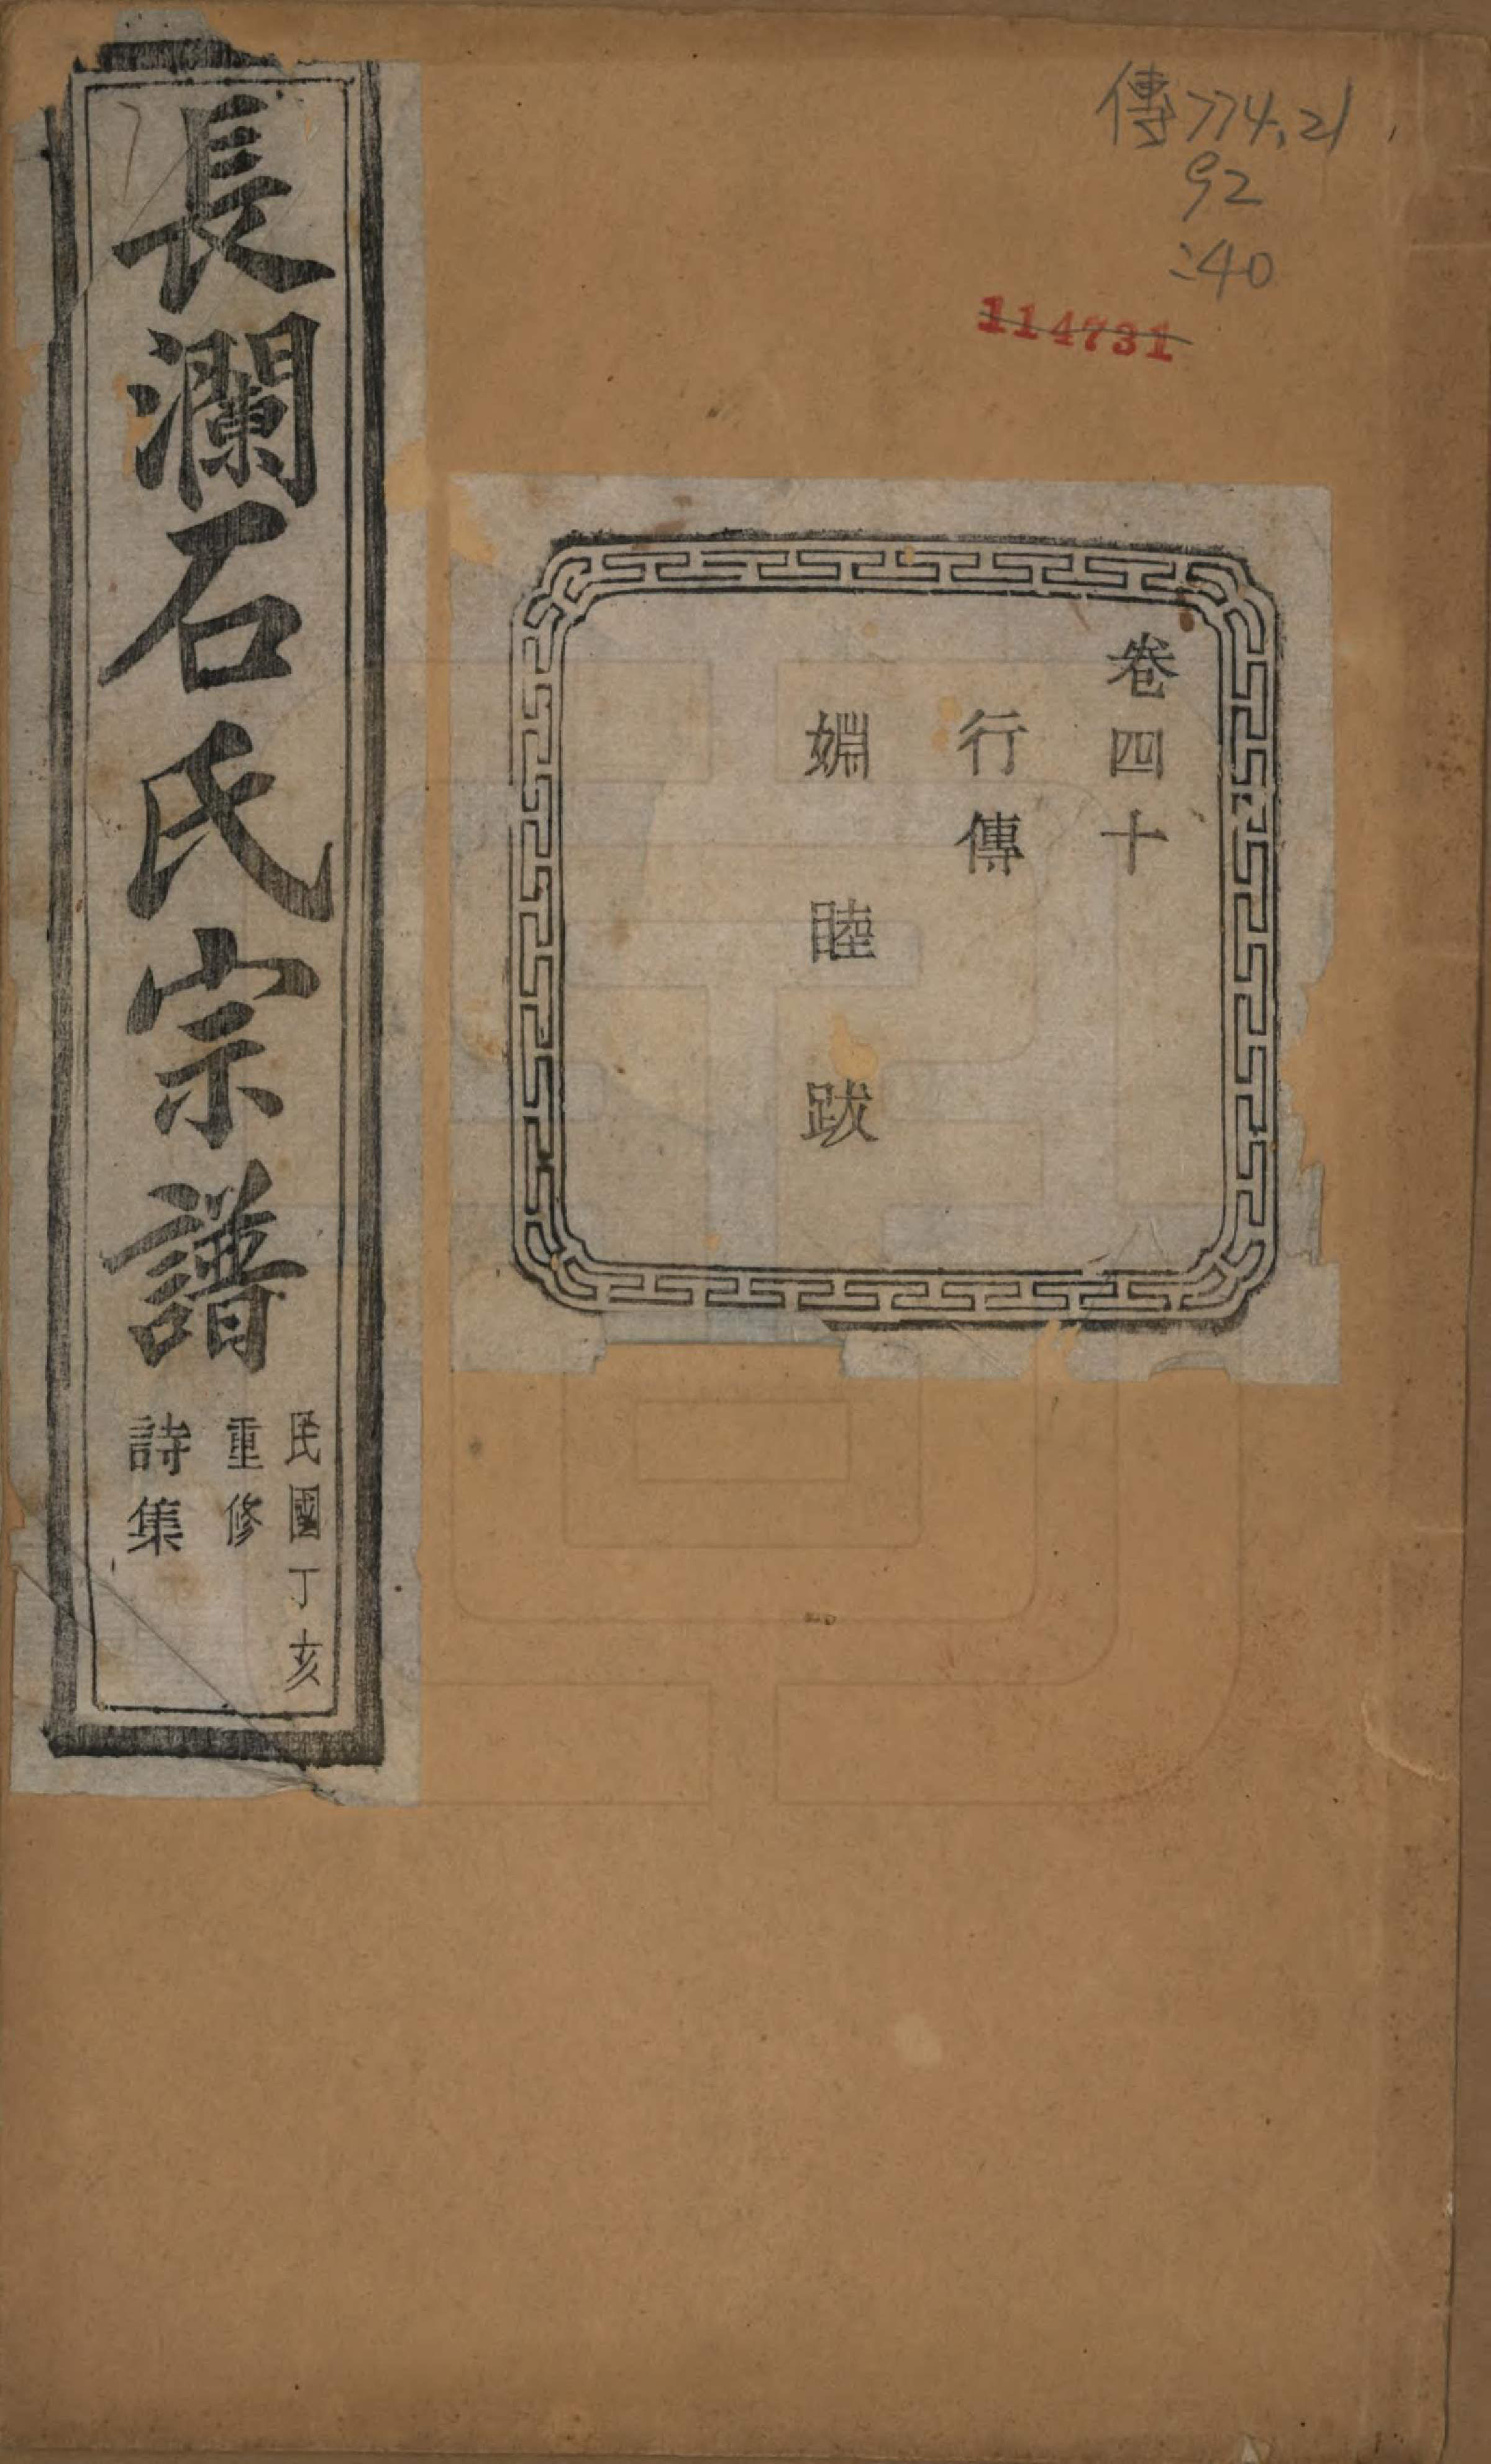 傳774.21
92
:40
114731
卷四十
行傳
婣睦跋
長瀾石氏宗譜
民國丁亥
重修
詩集